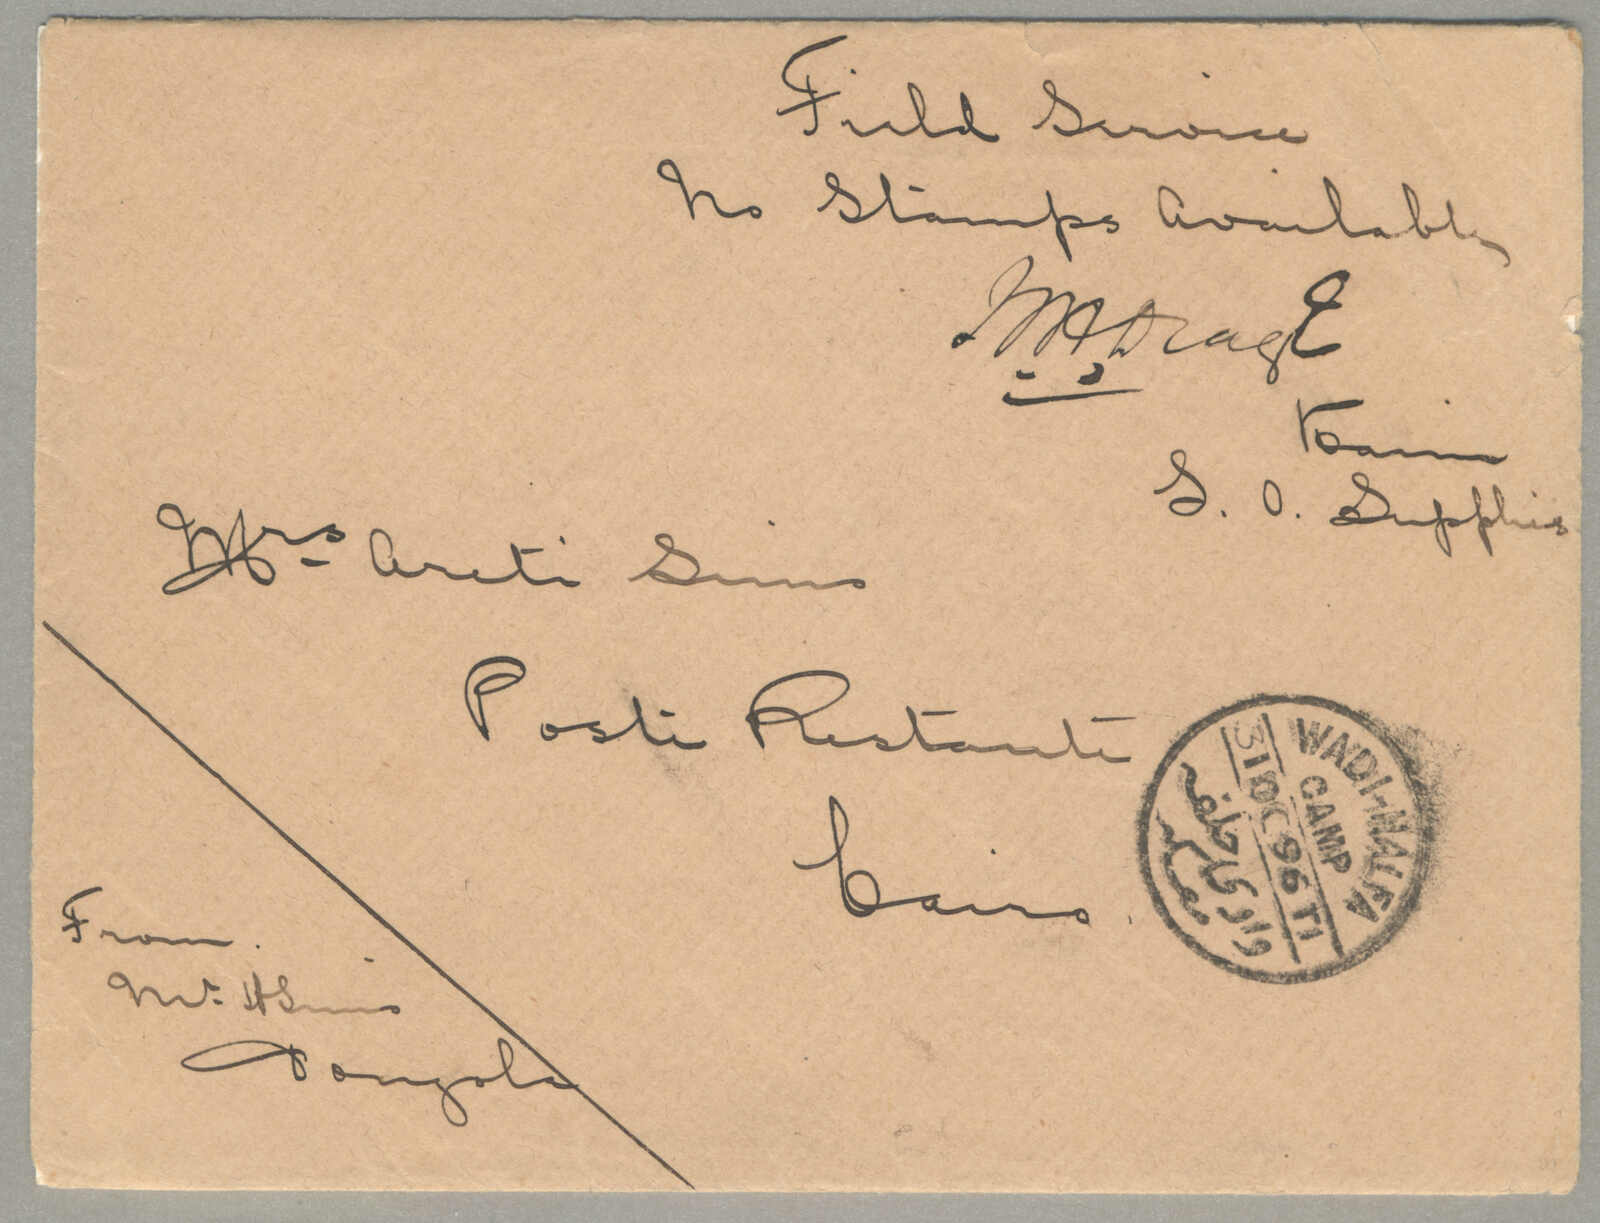 Field Service
No Stamps Available
WHDrage
Kaim
S. O. Supplies
Mrs Areti Sims
Poste Restante
Cairo.
WADI-HALFA
CAMP
31 DC 96 T1
وادي حلفه
معسكر
From.
Mr. H Sims
Dongola